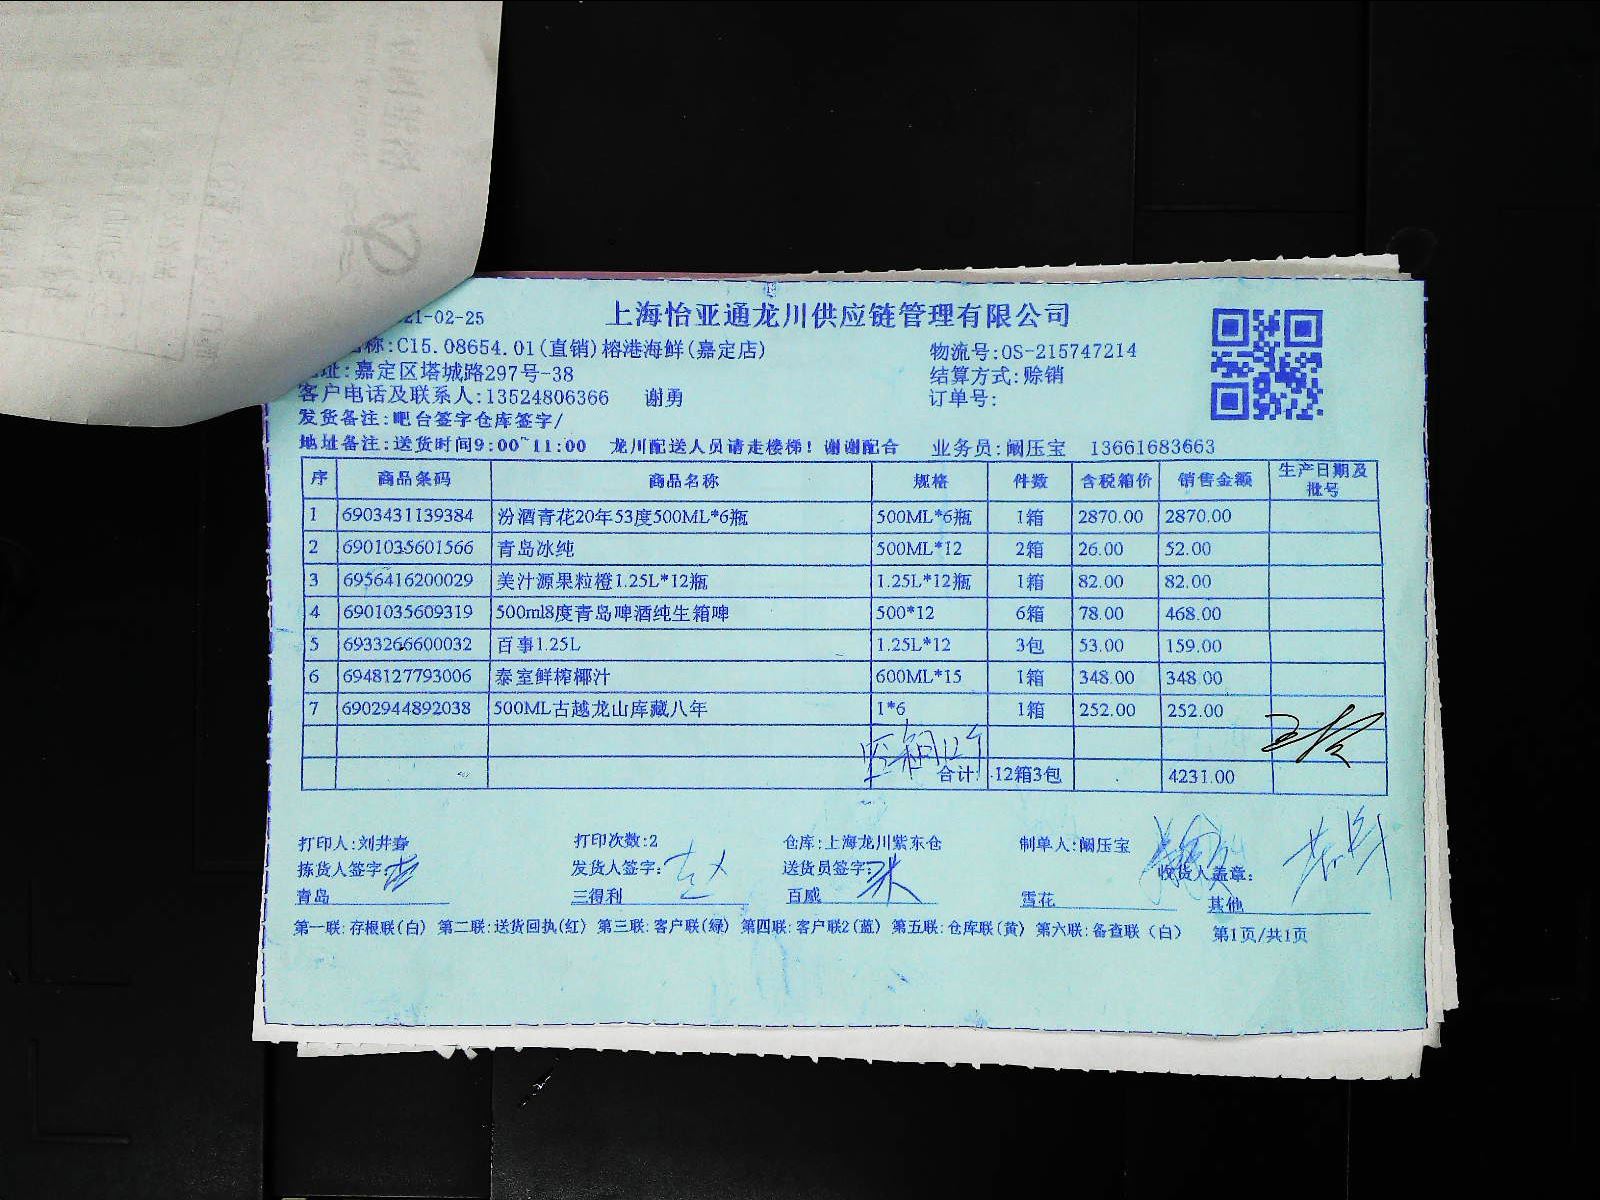 上海怡亚通龙川供应链管理有限公司
21-02-25
称:C15.08654.01(直销)榕港海鲜(嘉定店)
物流号:OS-215747214
址:嘉定区塔城路297号-38
结算方式:赊销
客户电话及联系人:13524806366 谢勇
订单号:
发货备注:吧台签字仓库签字/
地址备注:送货时间9:00~11:00 龙川配送人员请走楼梯!谢谢配合 业务员:阚压宝 13661683663
序 商品条码 商品名称 规格 件数 含税箱价 销售金额 生产日期及批号
1 6903431139384 汾酒青花20年53度500ML*6瓶 500ML*6瓶 1箱 2870.00 2870.00
2 6901035601566 青岛冰纯 500ML*12 2箱 26.00 52.00
3 6956416200029 美汁源果粒橙1.25L*12瓶 1.25L*12瓶 1箱 82.00 82.00
4 6901035609319 500ml8度青岛啤酒纯生箱啤 500*12 6箱 78.00 468.00
5 6933266600032 百事1.25L 1.25L*12 3包 53.00 159.00
6 6948127793006 泰室鲜榨椰汁 600ML*15 1箱 348.00 348.00
7 6902944892038 500ML古越龙山库藏八年 1*6 1箱 252.00 252.00
合计: 12箱3包 4231.00
打印人:刘井春 打印次数:2 仓库:上海龙川紫东仓 制单人:阚压宝
拣货人签字: 发货人签字: 送货员签字: 收货人盖章:
青岛 三得利 百威 雪花 其他
第一联:存根联(白) 第二联:送货回执(红) 第三联:客户联(绿) 第四联:客户联2(蓝) 第五联:仓库联(黄) 第六联:备查联(白) 第1页/共1页